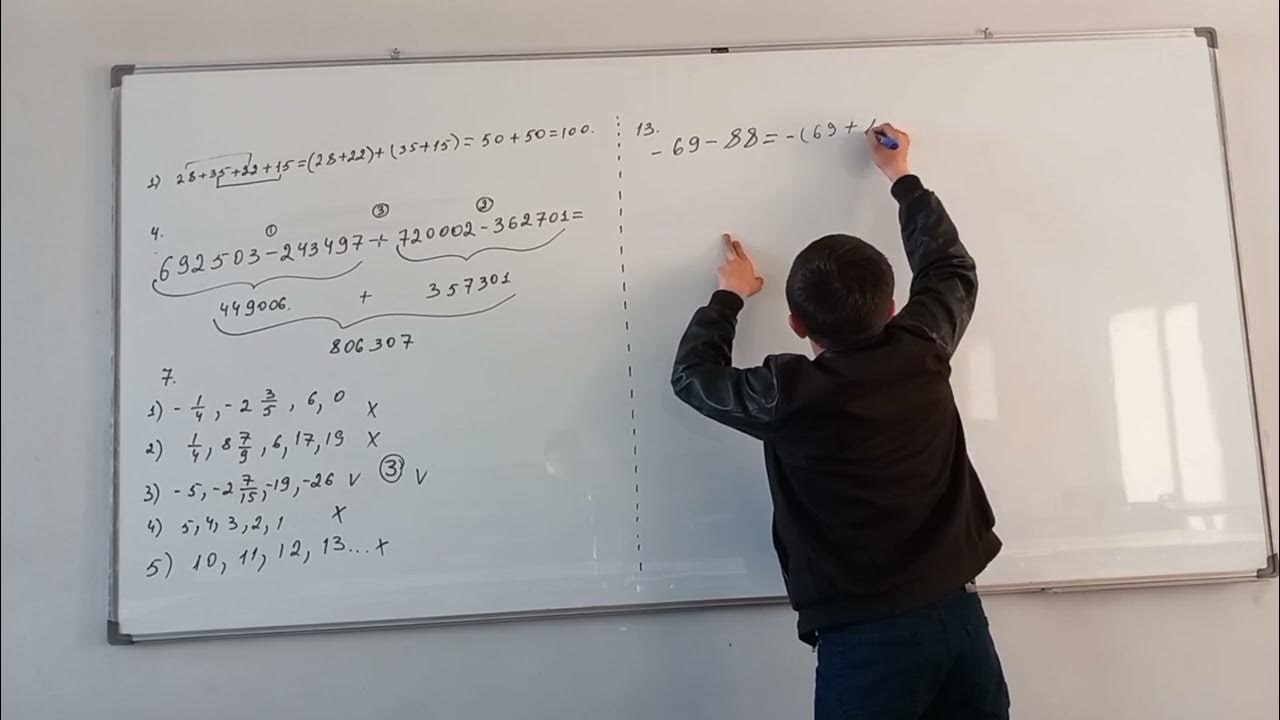 1) 28+35+22+15=(28+22)+(35+15)=50+50=100.
4.
① ③ ②
692503-243497+720002-362701=
449006. + 357301
806307
7.
1) -1/4, -2 3/5, 6, 0 x
2) 1/4, 8 7/9, 6, 17, 19 x
3) -5, -2 7/15, -19, -26 v ③ v
4) 5, 4, 3, 2, 1 x
5) 10, 11, 12, 13... x
13.
-69-88=-(69+